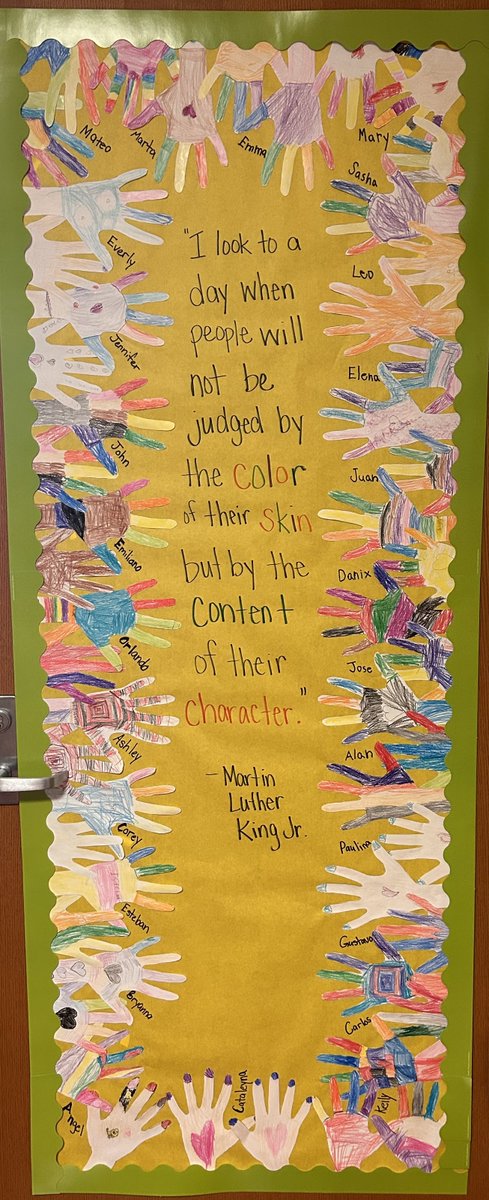 Mateo
Marta
Emma
Mary
Sasha
Everly
Leo
Jennifer
Elena
John
Juan
Emiliano
Danix
Orlando
Jose
Ashley
Alan
Corey
Paulina
Esteban
Gustavo
Bryanna
Carlos
Angel
Cataleyna
Kelly
"I look to a
day when
people will
not be
judged by
the color
of their skin
but by the
content
of their
character."
- Martin
Luther
King Jr.